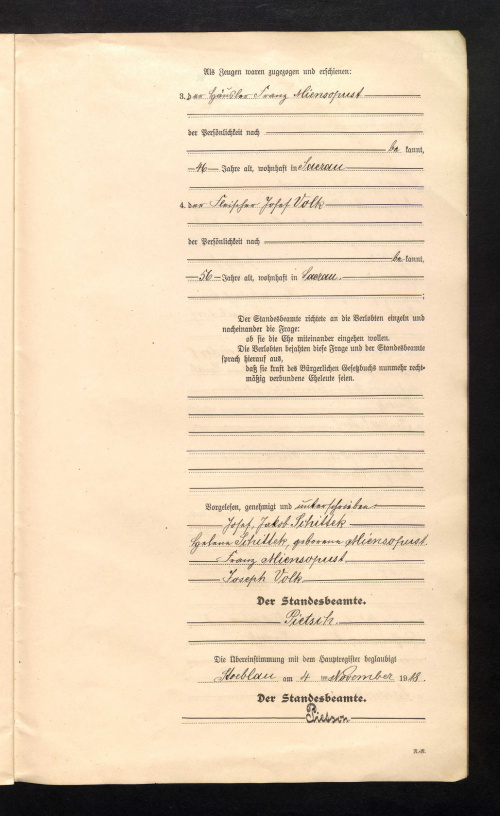 Als Zeugen waren zugezogen und erschienen:
3. der Häusler Franz Miensopust
der Persönlichkeit nach
be kannt,
46 Jahre alt, wohnhaft in Sacrau
4. der Fleischer Josef Volk
der Persönlichkeit nach
be kannt,
56 Jahre alt, wohnhaft in Sacrau.
;
Der Standesbeamte richtete an die Verlobten einzeln und
nacheinander die Frage:
ob sie die Ehe miteinander eingehen wollen.
Die Verlobten bejahten diese Frage und der Standesbeamte
sprach hierauf aus,
daß sie kraft des Bürgerlichen Gesetzbuchs nunmehr recht-
mäßig verbundene Eheleute seien.
Vorgelesen, genehmigt und unterschrieben
Josef, Jakob Schittek
Helene Schittek, geborene Miensopust.
Franz Miensopust
Joseph Volk
Der Standesbeamte.
Pietsch.
Die Übereinstimmung mit dem Hauptregister beglaubigt
am 4 ten November 1918.
Der Standesbeamte.